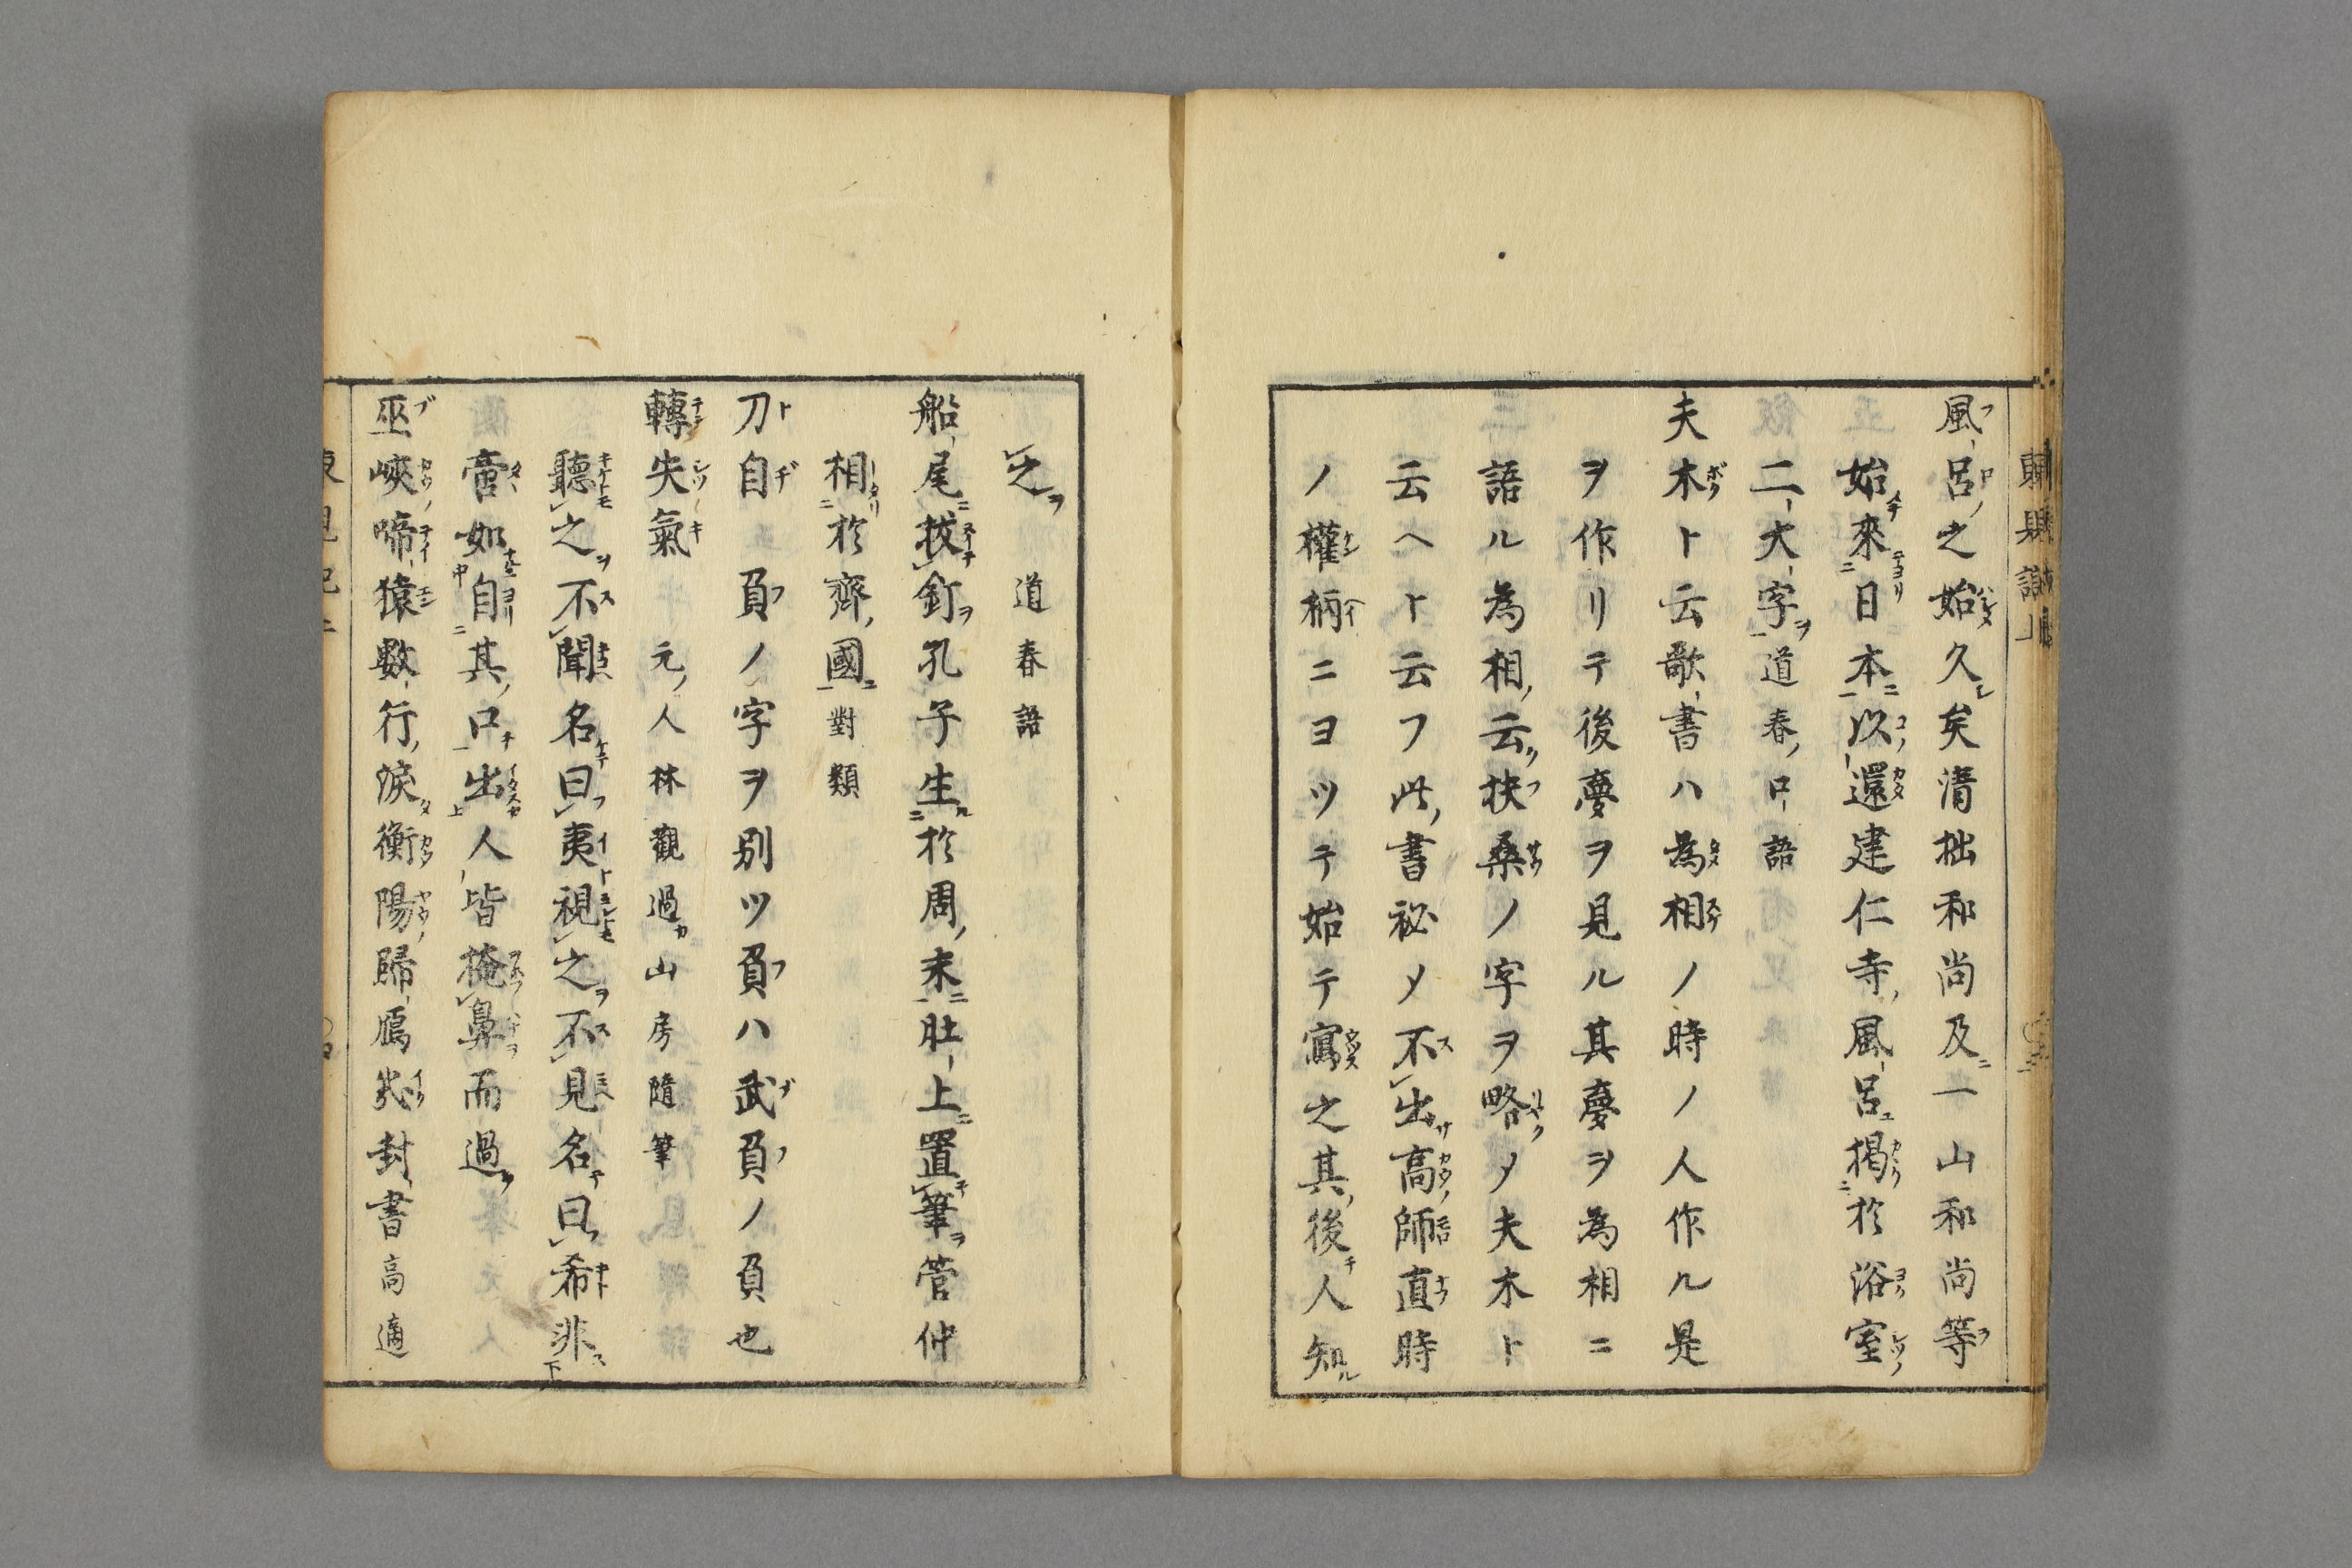 風呂之始久矣淸拙和尚及一山和尚等
始來日本以還建仁寺風呂揭於浴室
二大字道春口語
夫木ト云歌書ハ為相ノ時ノ人作ル是
ヲ作リテ後夢ヲ見ル其夢ヲ為相ニ
語ル為相云扶桑ノ字ヲ略メ夫木ト
云ヘト云フ此書祕メ不出高師直時
ノ權柄ニヨツテ始テ寫之其後人知
之道春語
船尾拔釘孔子生於周末肚上置筆管仲
相於齊國對類
刀自負ノ字ヲ別ツ負ハ武負ノ負也
轉失氣元人林觀過山房隨筆
聽之不聞名曰夷視之不見名曰希非
啻如自其口出人皆掩鼻而過
巫峽啼猿數行淚衡陽歸鴈幾封書高適